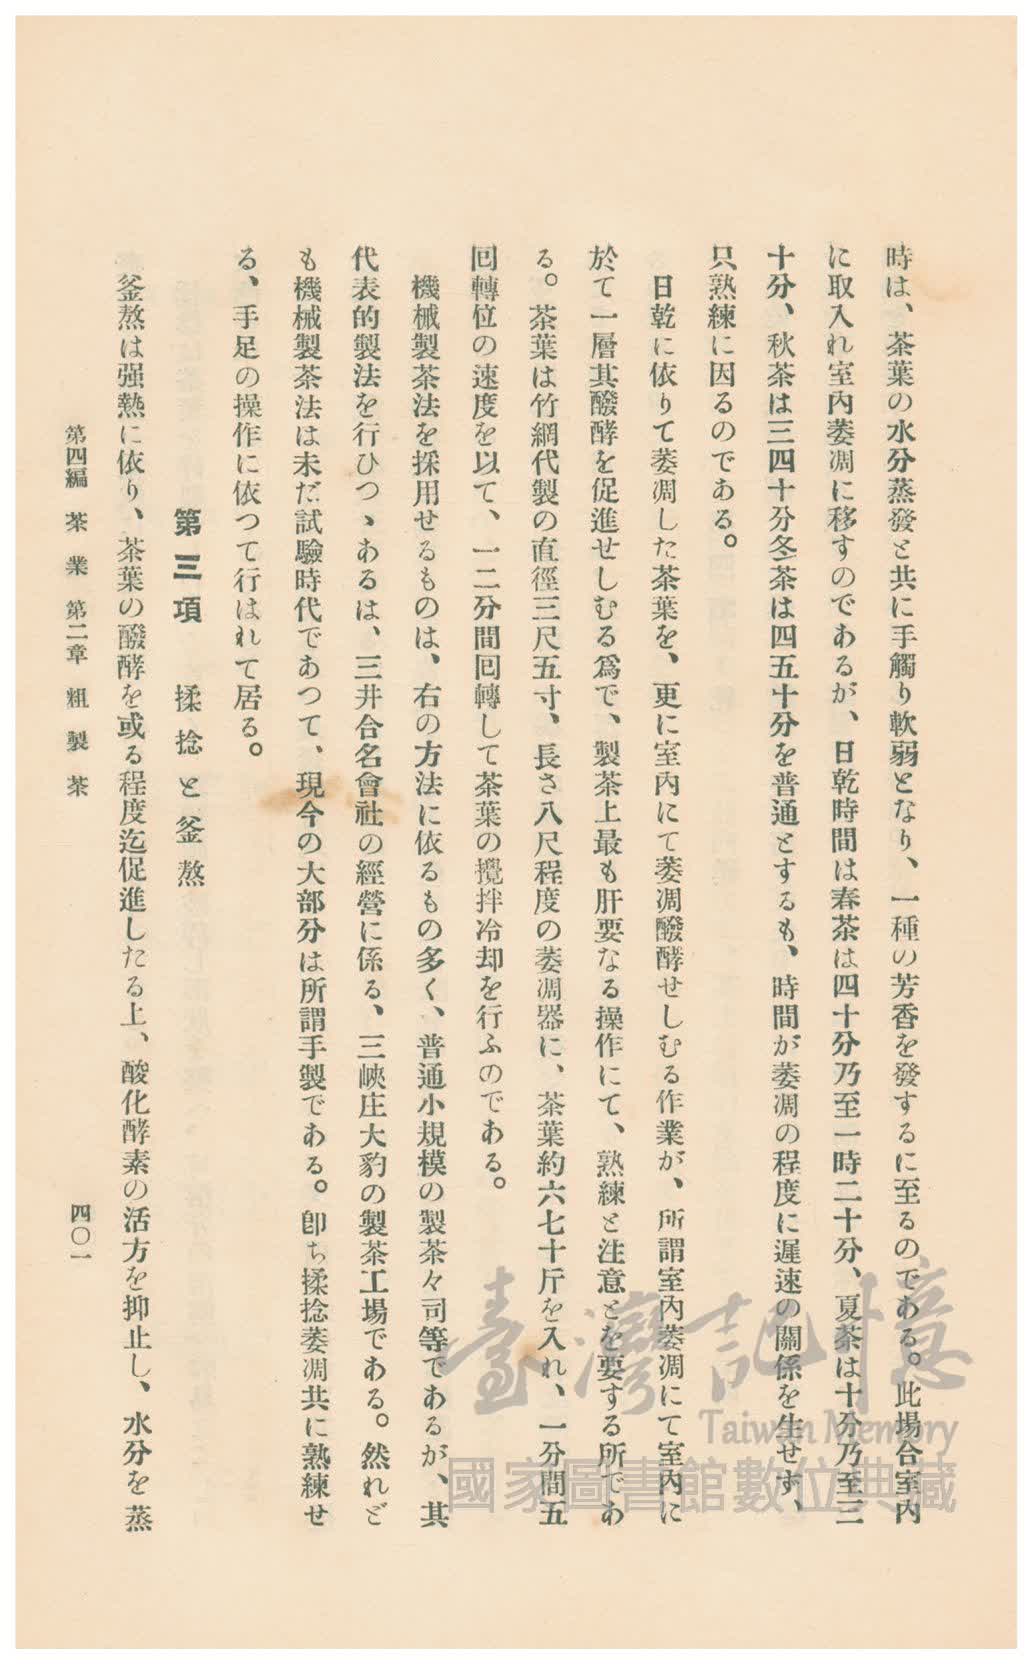 時は、茶葉の水分蒸發と共に手觸り軟弱となり、一種の芳香を發するに至るのである。此場合室内
に取入れ室内萎凋に移すのであるが、日乾時間は春茶は四十分乃至一時二十分、夏茶は十分乃至三
十分、秋茶は三四十分冬茶は四五十分を普通とするも、時間が萎凋の程度に遲速の關係を生せず、
只熟練に因るのである。
日乾に依りて萎凋した茶葉を、更に室内にて萎凋醱酵せしむる作業が、所謂室内萎凋にて室内に
於て一層其醱酵を促進せしむる爲で、製茶上最も肝要なる操作にて、熟練と注意とを要する所であ
る。茶葉は竹網代製の直徑三尺五寸、長さ八尺程度の萎凋器に、茶葉約六七十斤を入れ、一分間五
回轉位の速度を以て、一二分間回轉して茶葉の攪拌冷却を行ふのである。
機械製茶法を採用せるものは、右の方法に依るもの多く、普通小規模の製茶々司等であるが、其
代表的製法を行ひつゝあるは、三井合名會社の經營に係る、三峽庄大豹の製茶工場である。然れど
も機械製茶法は未だ試驗時代であつて、現今の大部分は所謂手製である。卽ち揉捻萎凋共に熟練せ
る、手足の操作に依つて行はれて居る。
第三項 揉捻と釜熬
釜熬は强熱に依り、茶葉の醱酵を或る程度迄促進したる上、酸化酵素の活方を抑止し、水分を蒸
第四編 茶業 第二章 粗製茶
四〇一
臺灣記憶
Taiwan Memory
國家圖書館數位典藏